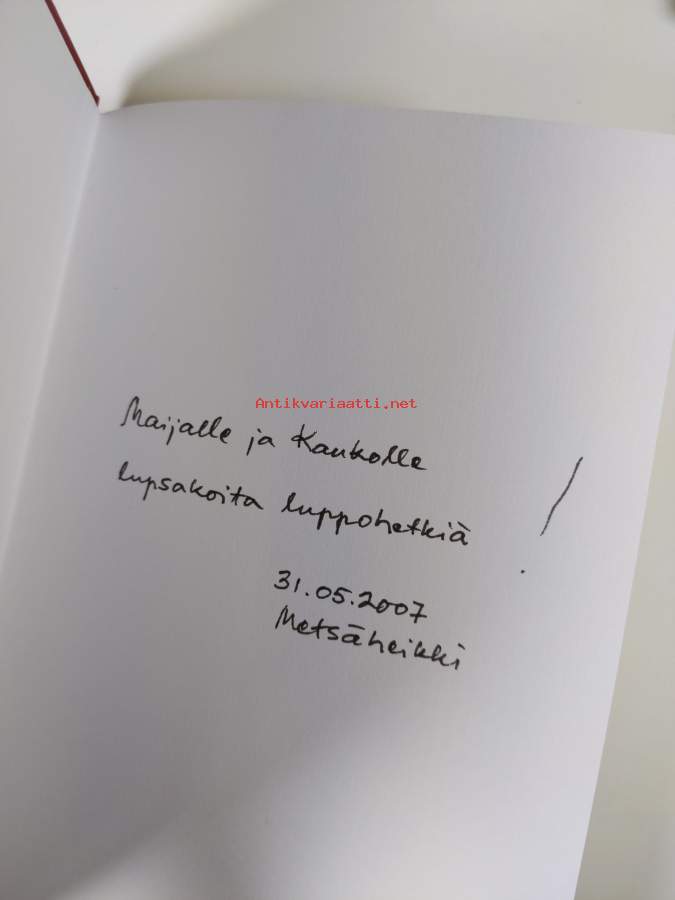 Antikvariaatti.net
Maijalle ja Kaukolle
lupsakoita luppohetkiä !
31.05.2007
Metsäheikki